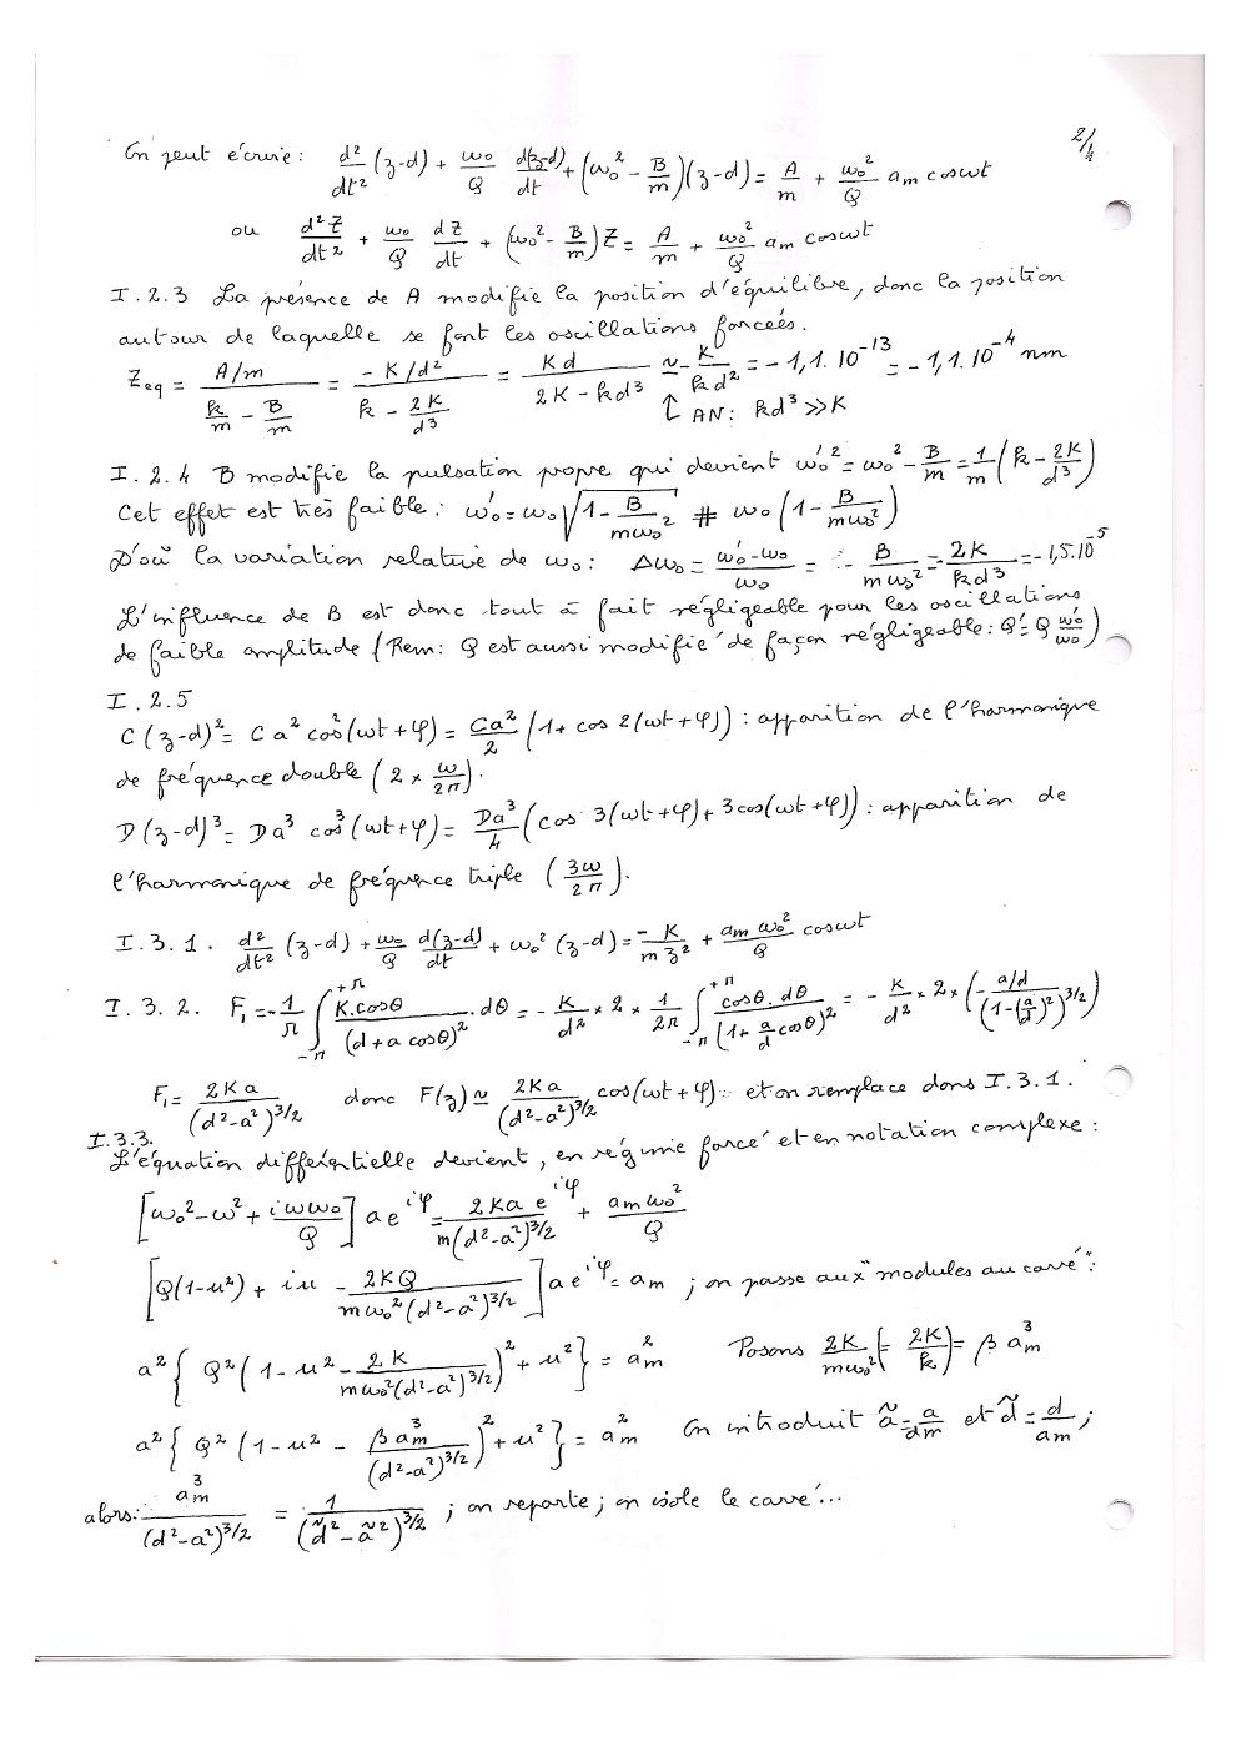 2/4
On peut écrire : d²/dt² (z-d) + ω₀/Q d(z-d)/dt + (ω₀² - B/m)(z-d) = A/m + ω₀²/Q a_m cosωt
ou d²Z/dt² + ω₀/Q dZ/dt + (ω₀² - B/m) Z = A/m + ω₀²/Q a_m cosωt
I.2.3 La présence de A modifie la position d'équilibre, donc la position
autour de laquelle se font les oscillations forcées.
Z_eq = (A/m)/(k/m - B/m) = (-K/d²)/(k - 2K/d³) = Kd/(2K - kd³) ≃ -K/(kd²) = -1,1.10⁻¹³ = -1,1.10⁻⁴ nm
↑ AN : kd³ ≫ K
I.2.4 B modifie la pulsation propre qui devient ω₀'² = ω₀² - B/m = 1/m (k - 2K/d³)
Cet effet est très faible : ω₀' = ω₀ √(1 - B/(mω₀²)) # ω₀ (1 - B/(mω₀²))
D'où la variation relative de ω₀ : Δω₀ = (ω₀' - ω₀)/ω₀ = - B/(mω₀²) = 2K/(kd³) = -1,5.10⁻⁵
L'influence de B est donc tout à fait négligeable pour les oscillations
de faible amplitude (Rem : Q est aussi modifié de façon négligeable : Q' = Q ω₀'/ω₀)
I.2.5
C(z-d)² = C a² cos²(ωt+φ) = Ca²/2 (1 + cos 2(ωt+φ)) : apparition de l'harmonique
de fréquence double (2 × ω/2π).
D(z-d)³ = Da³ cos³(ωt+φ) = Da³/4 (cos 3(ωt+φ) + 3cos(ωt+φ)) : apparition de
l'harmonique de fréquence triple (3ω/2π).
I.3.1. d²/dt² (z-d) + ω₀/Q d(z-d)/dt + ω₀² (z-d) = -K/(m z²) + a_m ω₀²/Q cosωt
I.3.2. F₁ = -1/π ∫_{-π}^{+π} K.cosθ/(d + a cosθ)² . dθ = - K/d² × 2 × 1/2π ∫_{-π}^{+π} cosθ.dθ/(1 + a/d cosθ)² = - K/d² × 2 × (- (a/d)/(1 - (a/d)²)^{3/2})
F₁ = 2Ka/(d²-a²)^{3/2} donc F(z) ≃ 2Ka/(d²-a²)^{3/2} cos(ωt+φ) et on remplace dans I.3.1.
I.3.3.
L'équation différentielle devient, en régime forcé et en notation complexe :
[ω₀² - ω² + iωω₀/Q] a e^{iφ} = 2Ka e^{iφ}/(m(d²-a²)^{3/2}) + a_m ω₀²/Q
[Q(1-u²) + iu - 2KQ/(mω₀²(d²-a²)^{3/2})] a e^{iφ} = a_m ; on passe aux "modules au carré" :
a² { Q² (1 - u² - 2K/(mω₀²(d²-a²)^{3/2}))² + u² } = a_m² Posons 2K/(mω₀²) (= 2K/k) = β a_m³
a² { Q² (1 - u² - β a_m³/(d²-a²)^{3/2})² + u² } = a_m² On introduit ã = a/a_m et d̃ = d/a_m ;
alors : a_m³/(d²-a²)^{3/2} = 1/(d̃² - ã²)^{3/2} ; on reporte ; on isole le carré...